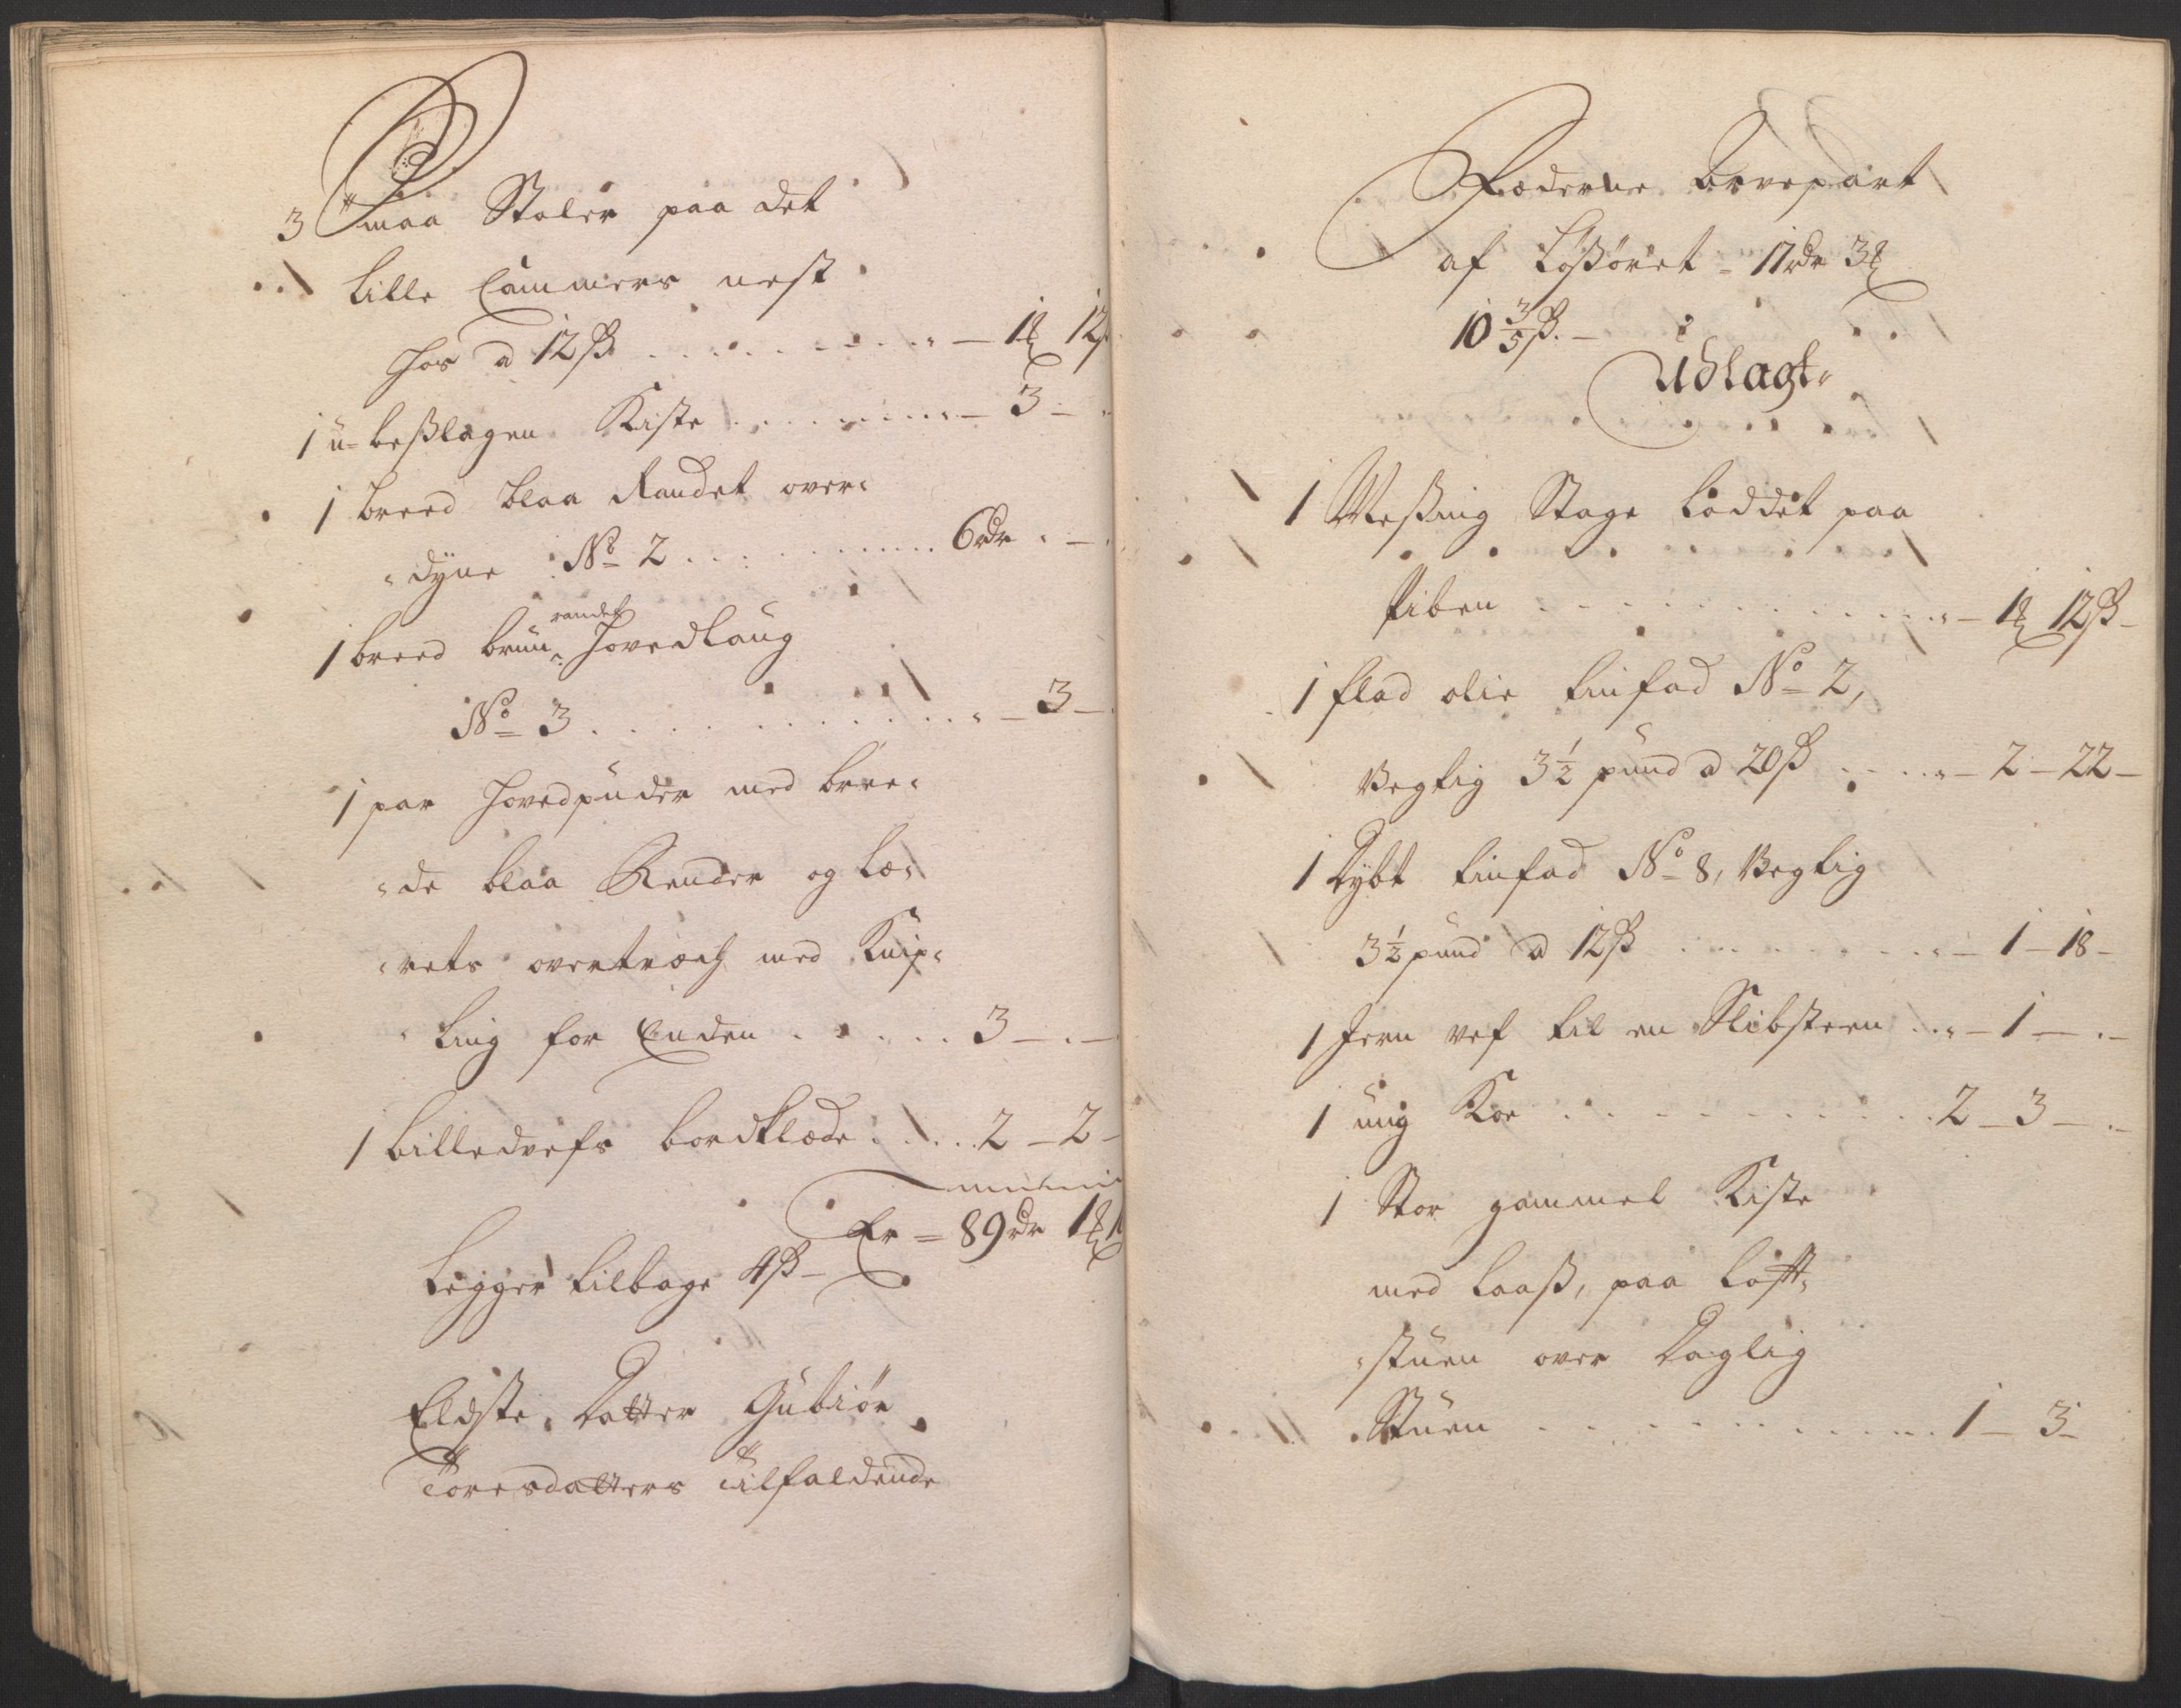 3 Smaa Stoler paa det
lille Cammers nest
hos a 12ß . . . . . . . . . — 1 12
1 u-beßlagen Kiste . . . . . . . — 3 —
1 breed blaa Randet over=
=dyne No 2 . . . . . . . . . 6 rdr . —
randet
1 breed brun hovedlaug
No 3 . . . . . . . . . . — 3 —
1 par hovedpuder med bree=
=de blaa Render og læ=
=rets overtræch med Knip=
ling for Enden . . . . . 3 — . —
1 billedvefs bordklæde . . . . 2 — 2 —
Er = 89 rdr 1
legger tilbage 4ß —
Eldste Datter Gubiør
Toresdatters tilfaldende
Fæderne Arvepart
af Løßøret = 17 rdr 3
10 3/5 ß. —
Udlagt
1 Meßing Stage loddet paa
Piben . . . . . . . . . . . — 1 12ß —
1 flad olie tinfad No 2,
Vegtig 3½ pund a 20ß . . . . — 2 — 22 —
1 Dybt tinfad No 8, Vegtig
3½ pund a 12ß . . . . . . . . — 1 — 18 —
1 Jern vef til en Slibsteen . . — 1 — . —
1 ung Koe . . . . . . . . . . 2 — 3 — . —
1 Stor gammel Kiste
med laaß, paa loft=
=stuen over Daglig
Stuen . . . . . . . . . . . 1 — 3 —